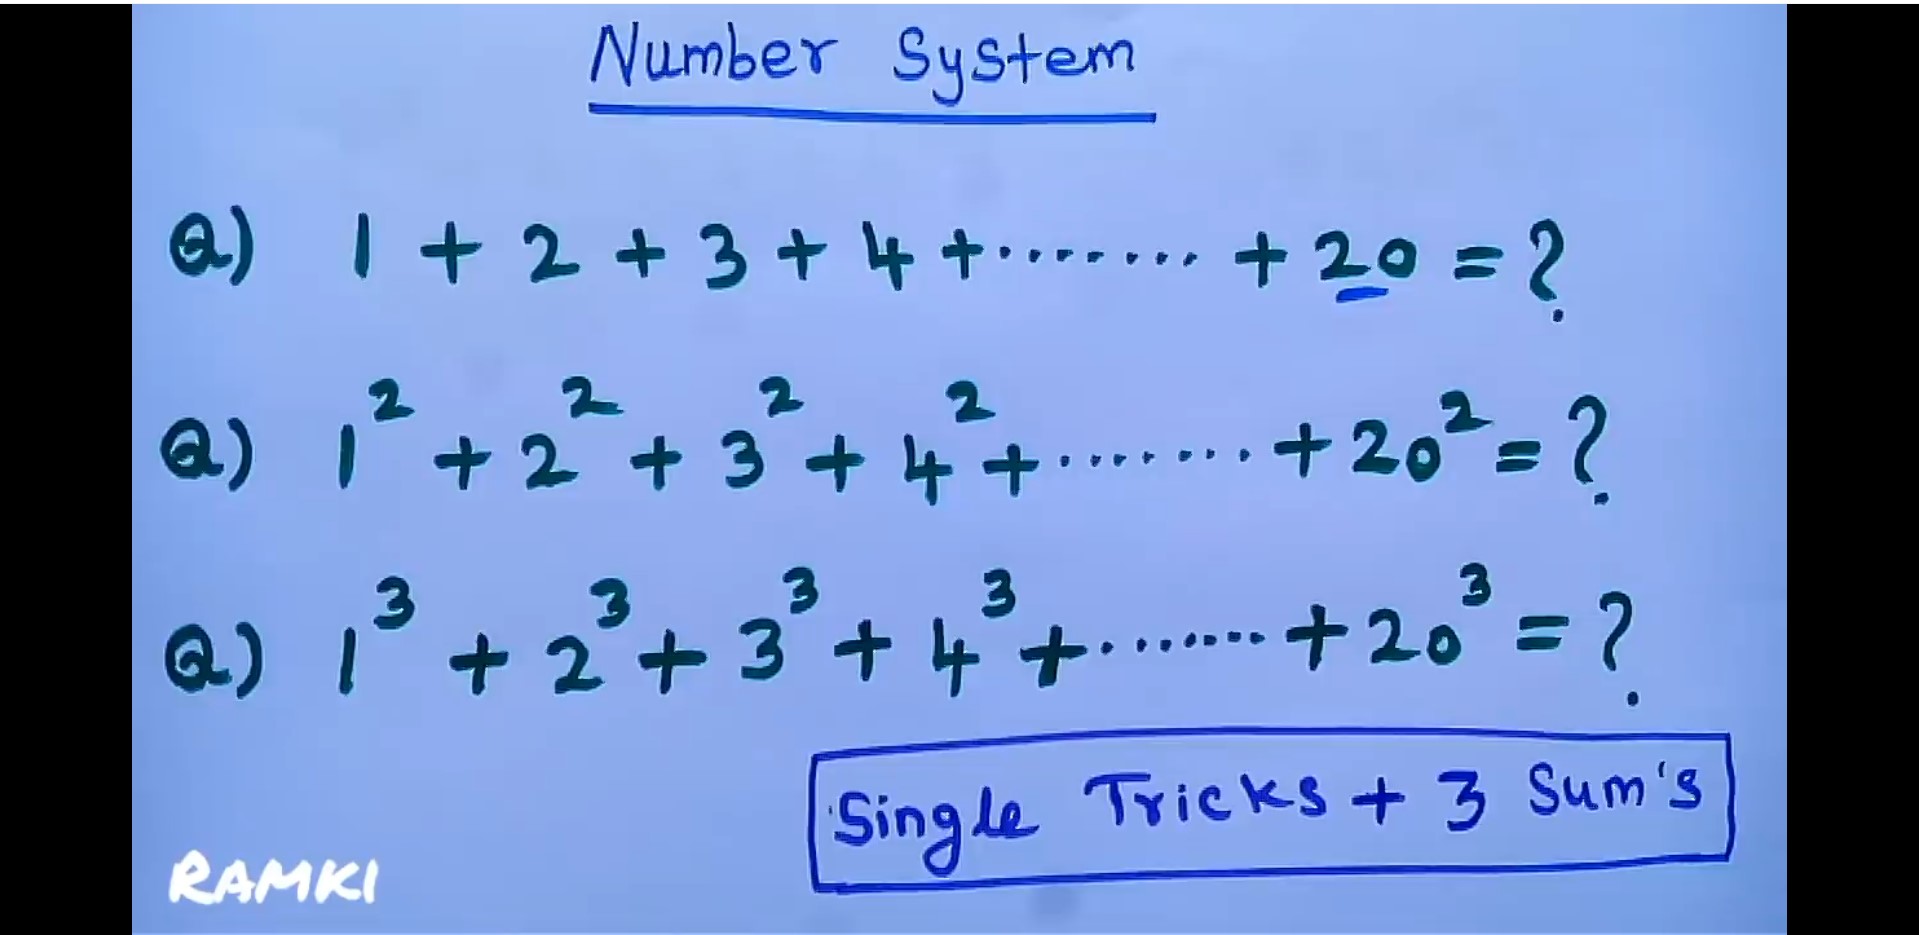 Number System
Q) 1 + 2 + 3 + 4 + ........ + 20 = ?
Q) 1² + 2² + 3² + 4² + ........ + 20² = ?
Q) 1³ + 2³ + 3³ + 4³ + ........ + 20³ = ?
Single Tricks + 3 Sum's
RAMKI